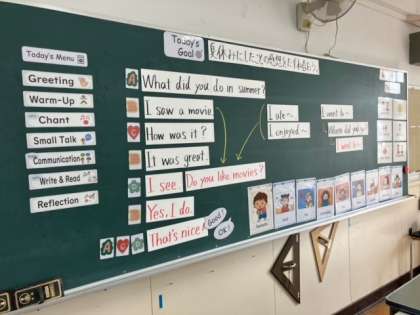 Today's Menu
Greeting
Warm-Up
Chant
Small Talk
Communication
Write & Read
Reflection
Today's Goal
What did you do in summer?
I saw a movie.
How was it?
It was great.
I see. Do you like movies?
Yes, I do.
That's nice.
GOOD!
OK!
I ate~
I enjoyed~
I went to~
Where did you
I went to~